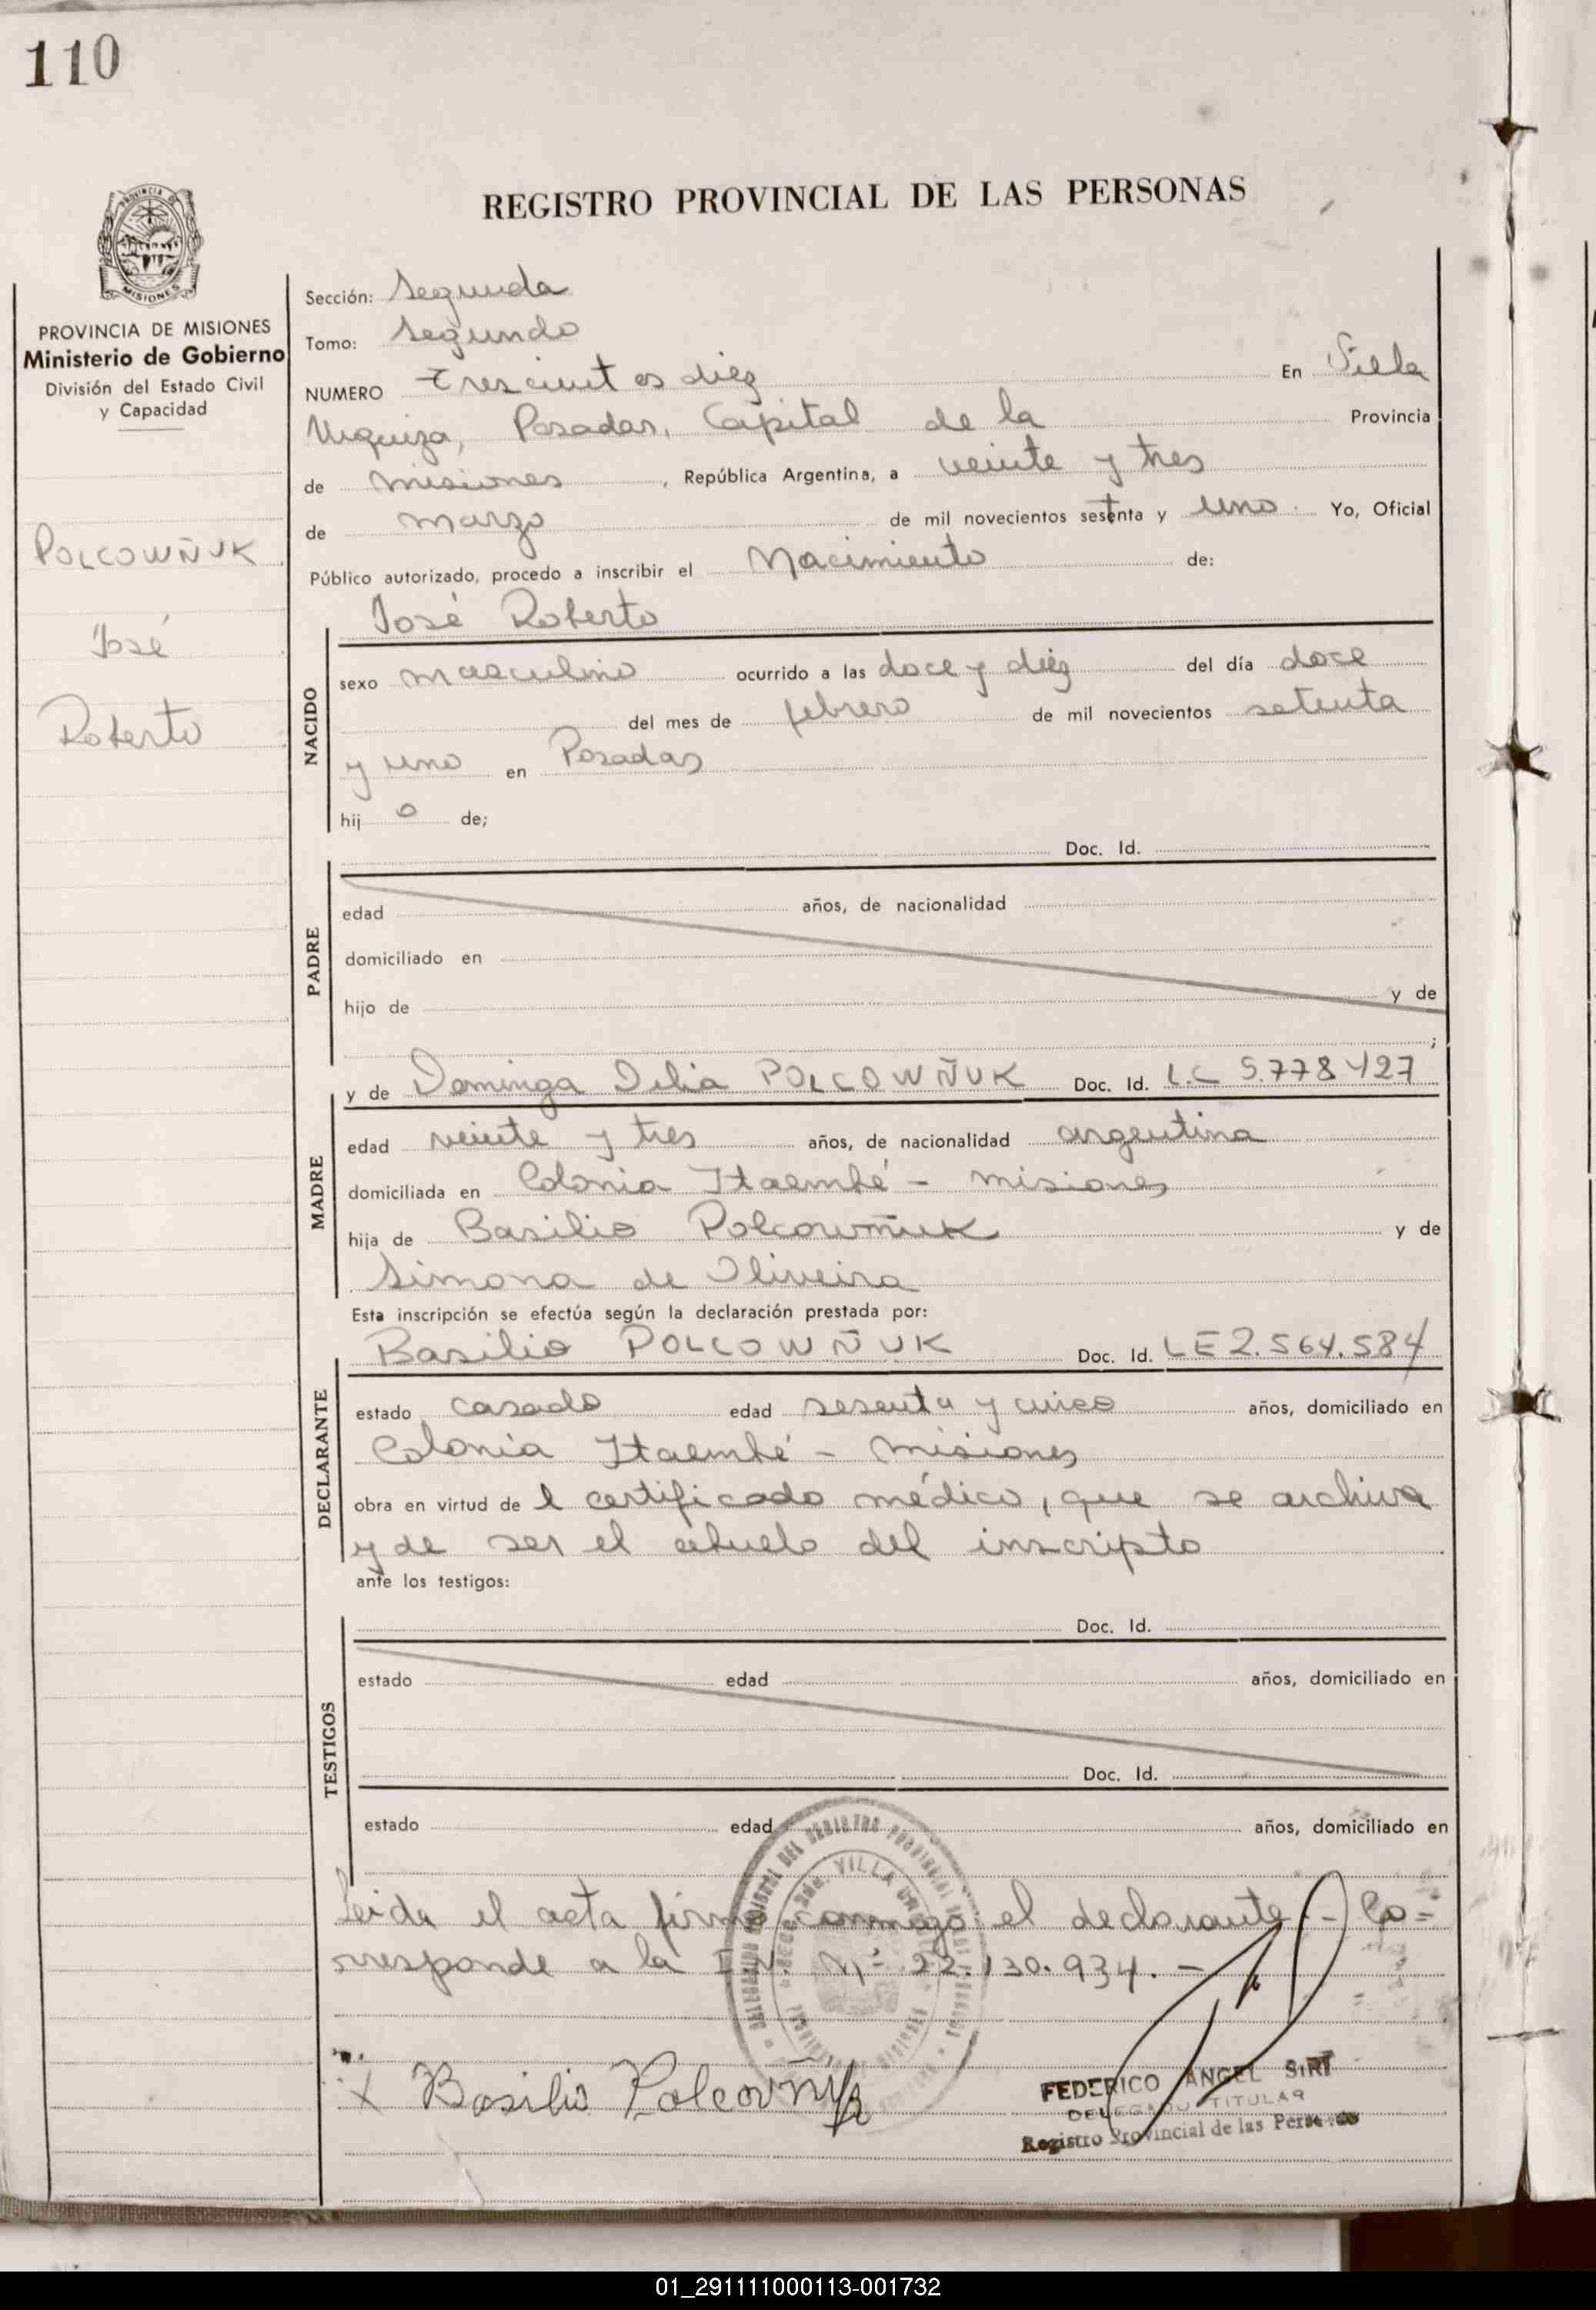 110
REGISTRO PROVINCIAL DE LAS PERSONAS
PROVINCIA DE
MISIONES
PROVINCIA DE MISIONES
Ministerio de Gobierno
División del Estado Civil
y Capacidad
POLCOWÑUK
José
Roberto
Sección: Segunda
Tomo: Segundo
NUMERO trescientos diez En Villa
Urquiza, Posadas, Capital de la Provincia
de Misiones, República Argentina, a veinte y tres
de marzo de mil novecientos setenta y uno. Yo, Oficial
Público autorizado, procedo a inscribir el Nacimiento de:
José Roberto
NACIDO
sexo masculino ocurrido a las doce y diez del día doce
del mes de febrero de mil novecientos setenta
y uno en Posadas
hijo de;
Doc. Id.
PADRE
edad años, de nacionalidad
domiciliado en
hijo de y de
;
y de Dominga Delia POLCOWÑUK Doc. Id. L.C 5.778427
MADRE
edad veinte y tres años, de nacionalidad argentina
domiciliada en Colonia Itaembé - Misiones
hija de Basilio Polcowñuk y de
Simona de Oliveira
Esta inscripción se efectúa según la declaración prestada por:
Basilio POLCOWÑUK Doc. Id. LE 2.564.584
DECLARANTE
estado casado edad sesenta y cinco años, domiciliado en
Colonia Itaembé - Misiones
obra en virtud de l certificado médico, que se archiva
y de ser el abuelo del inscripto
ante los testigos:
Doc. Id.
TESTIGOS
estado edad años, domiciliado en
Doc. Id.
estado edad años, domiciliado en
Leida el acta firma conmigo el declarante.- Co=
rresponde a la I.N. Nº 22.130.934.-
VILLA
x Basilio Polcowñuk
FEDERICO ANGEL SIRI
DELEGADO TITULAR
Registro Provincial de las Personas
01_291111000113-001732